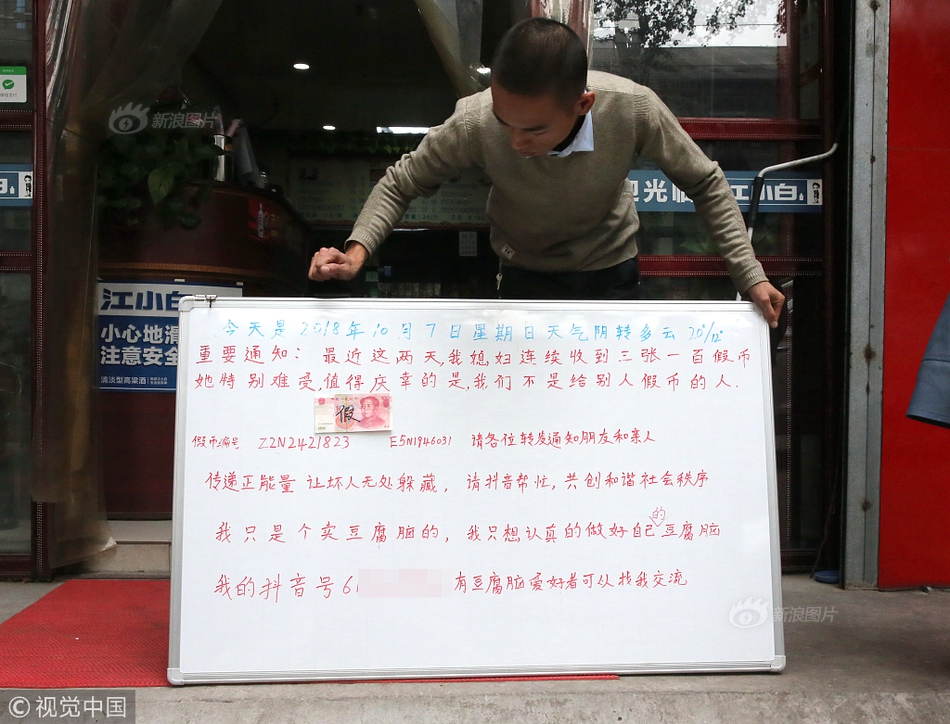 新浪图片
江小白
小心地滑
注意安全
清淡型高粱酒
迎光临
江小白
今天是2018年10月7日星期日天气阴转多云20°/12°
重要通知：最近这两天，我媳妇连续收到三张一百假币
她特别难受，值得庆幸的是，我们不是给别人假币的人.
假
假币编号 Z2N2421823 E5N1946031 请各位转发通知朋友和亲人
传递正能量 让坏人无处躲藏，请抖音帮忙，共创和谐社会秩序
我只是个卖豆腐脑的，我只想认真的做好自己的豆腐脑
我的抖音号61 有豆腐脑爱好者可以找我交流
新浪图片
©视觉中国